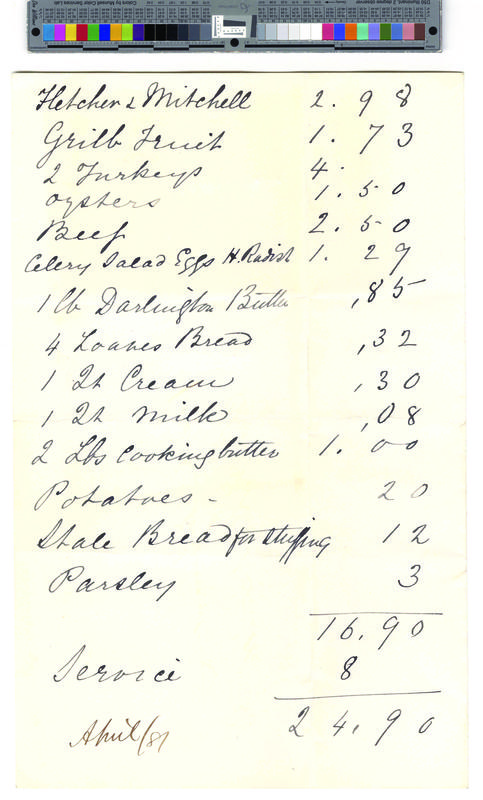 Fletcher & Mitchell 2.98
Grilb Fruit 1.73
2 Turkeys 4.
oysters 1.50
Beef 2.50
Celery Salad Eggs H. Radish 1.29
1 lb Darlington Butter ,85
4 Loaves Bread ,32
1 Qt Cream ,30
1 Qt Milk ,08
2 Lbs Cooking butter 1.00
Potatoes - 20
Stale Bread for stuffing 12
Parsley 3
16.90
Service 8
24.90
April/81